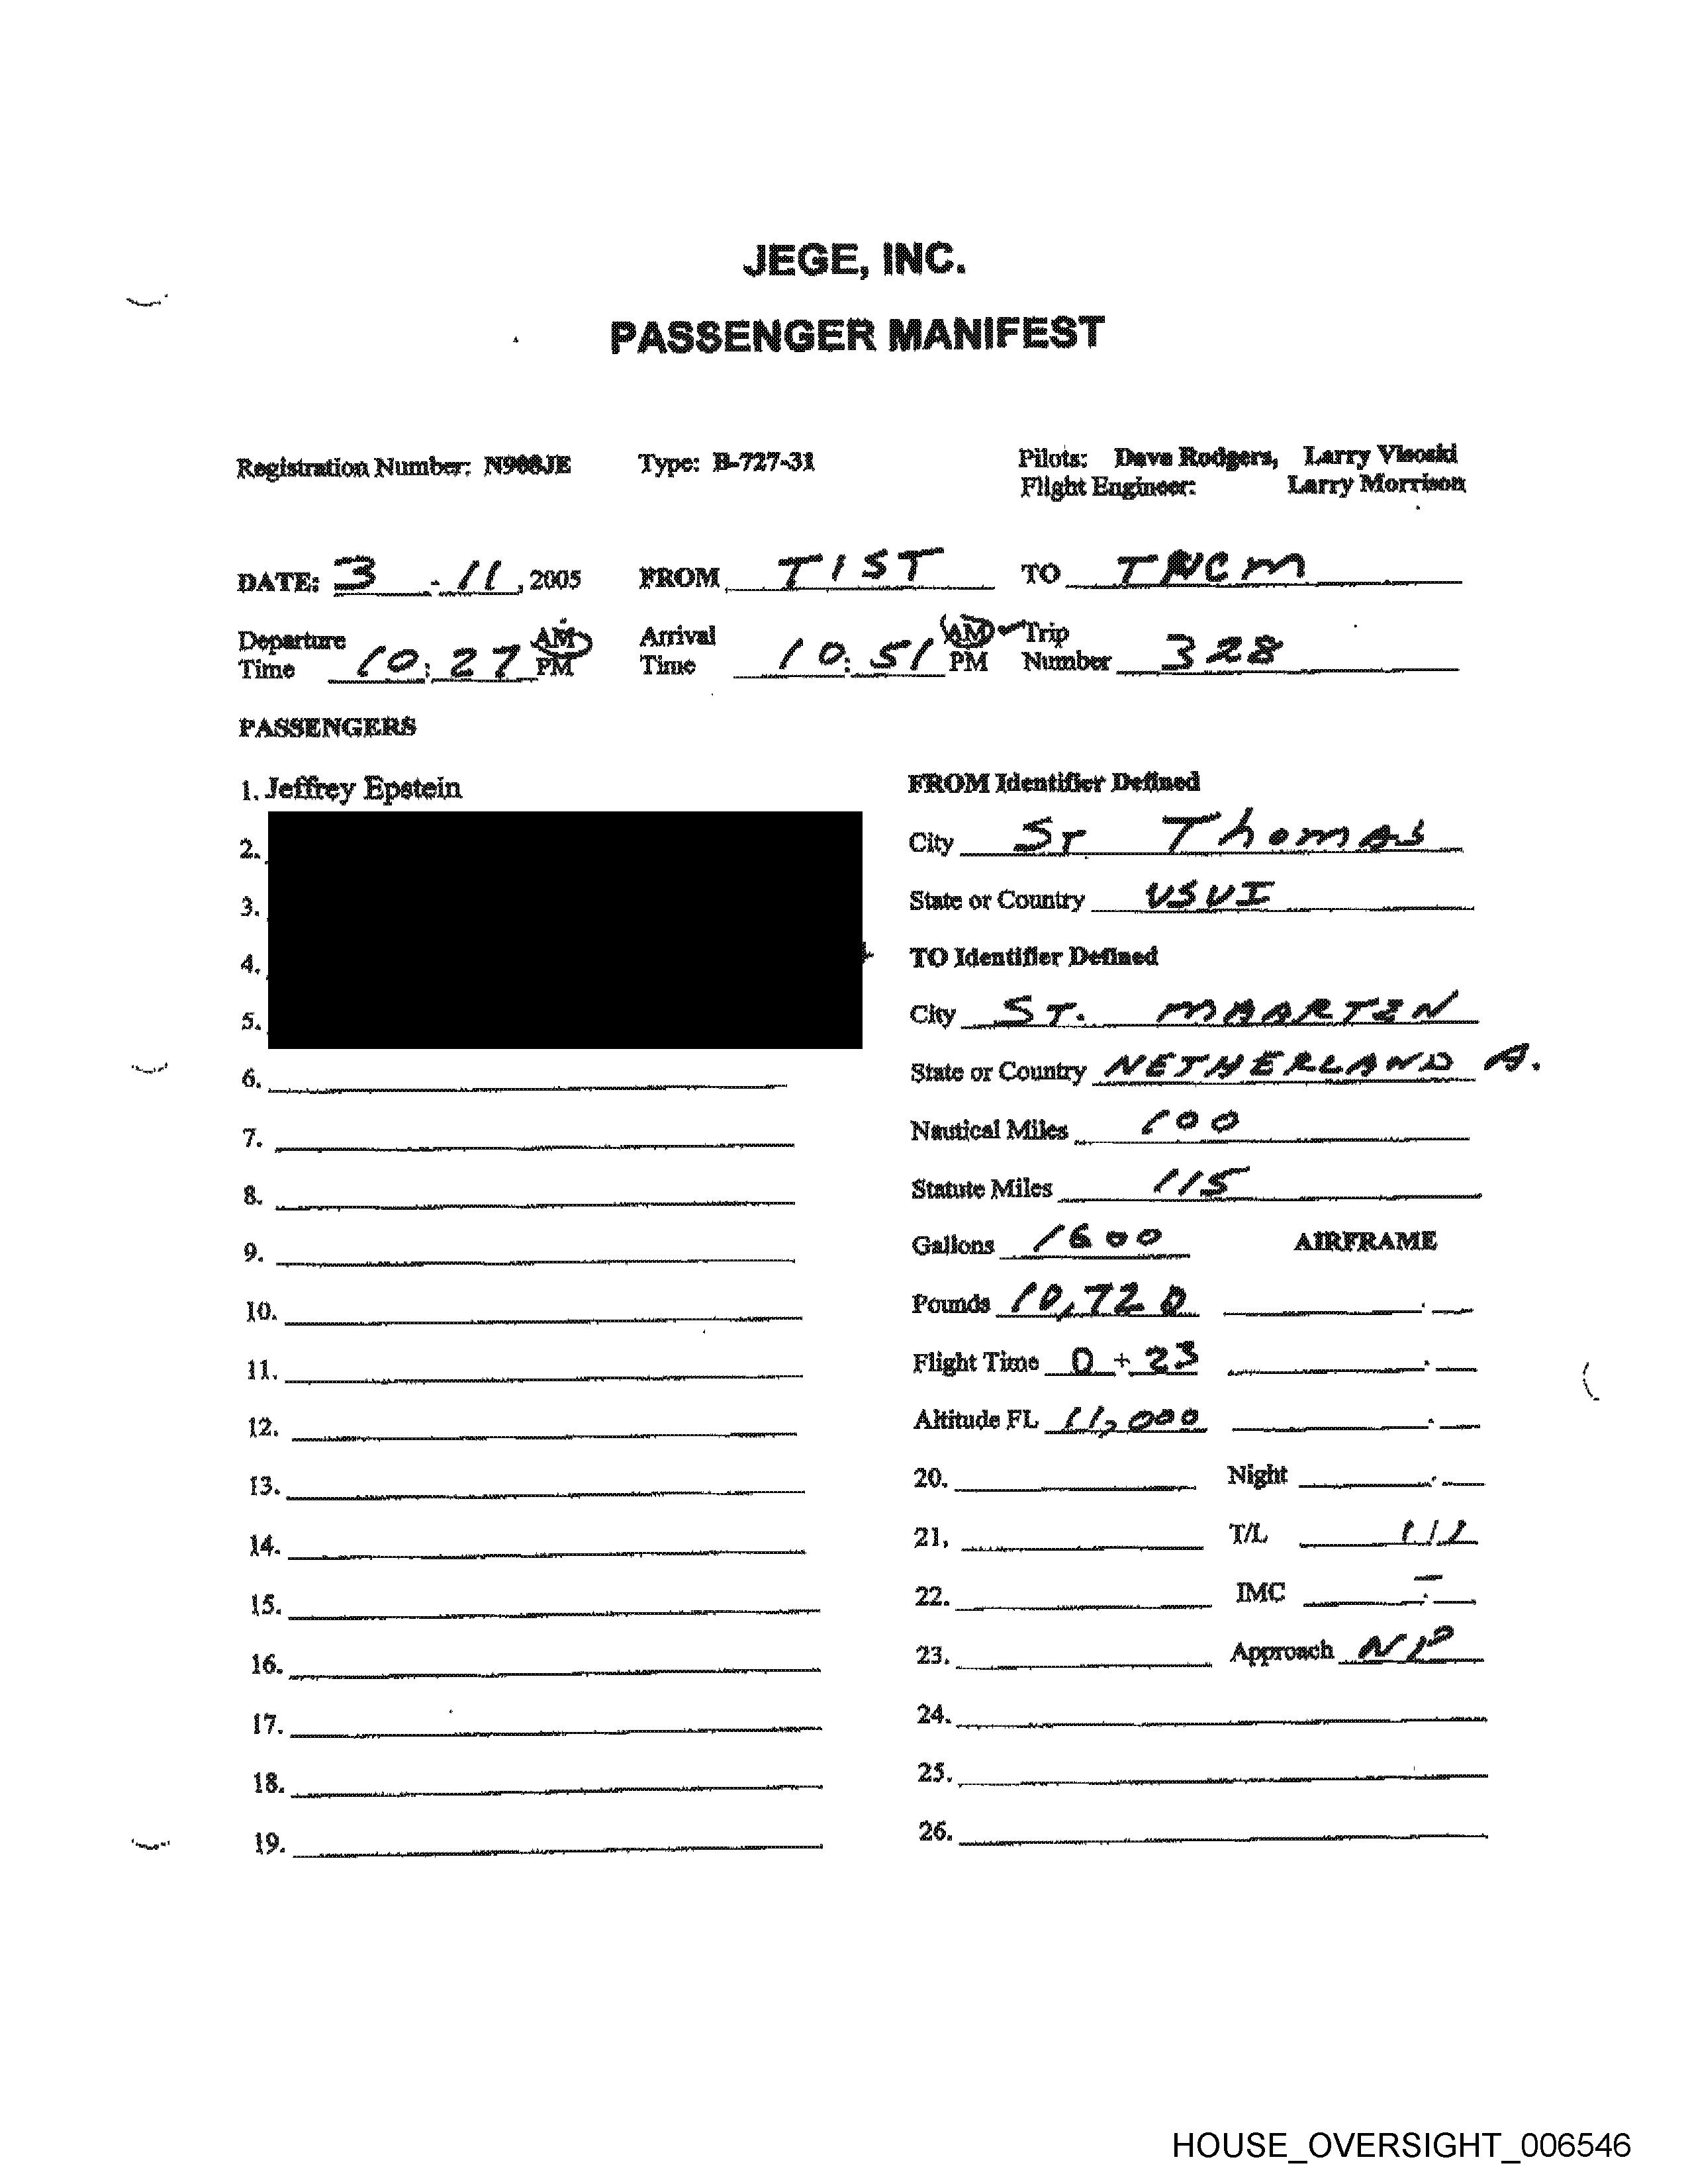 JEGE, INC.
PASSENGER MANIFEST
Registration Number: N908JE Type: B-727-31 Pilots: Dave Rodgers, Larry Visoski
Flight Engineer: Larry Morrison
DATE: 3 - 11, 2005 FROM TIST TO TNCM
Departure Time 10:27 AM PM Arrival Time 10:51 AM PM Trip Number 328
PASSENGERS
1. Jeffrey Epstein
2.
3.
4.
5.
6.
7.
8.
9.
10.
11.
12.
13.
14.
15.
16.
17.
18.
19.
FROM Identifier Defined
City St Thomas
State or Country USVI
TO Identifier Defined
City ST. MAARTEN
State or Country NETHERLAND A.
Nautical Miles 100
Statute Miles 115
Gallons 1600 AIRFRAME
Pounds 10,720
Flight Time 0 + 23
Altitude FL 11,000
20. Night
21. T/L 1/1
22. IMC -
23. Approach
24.
25.
26.
HOUSE_OVERSIGHT_006546